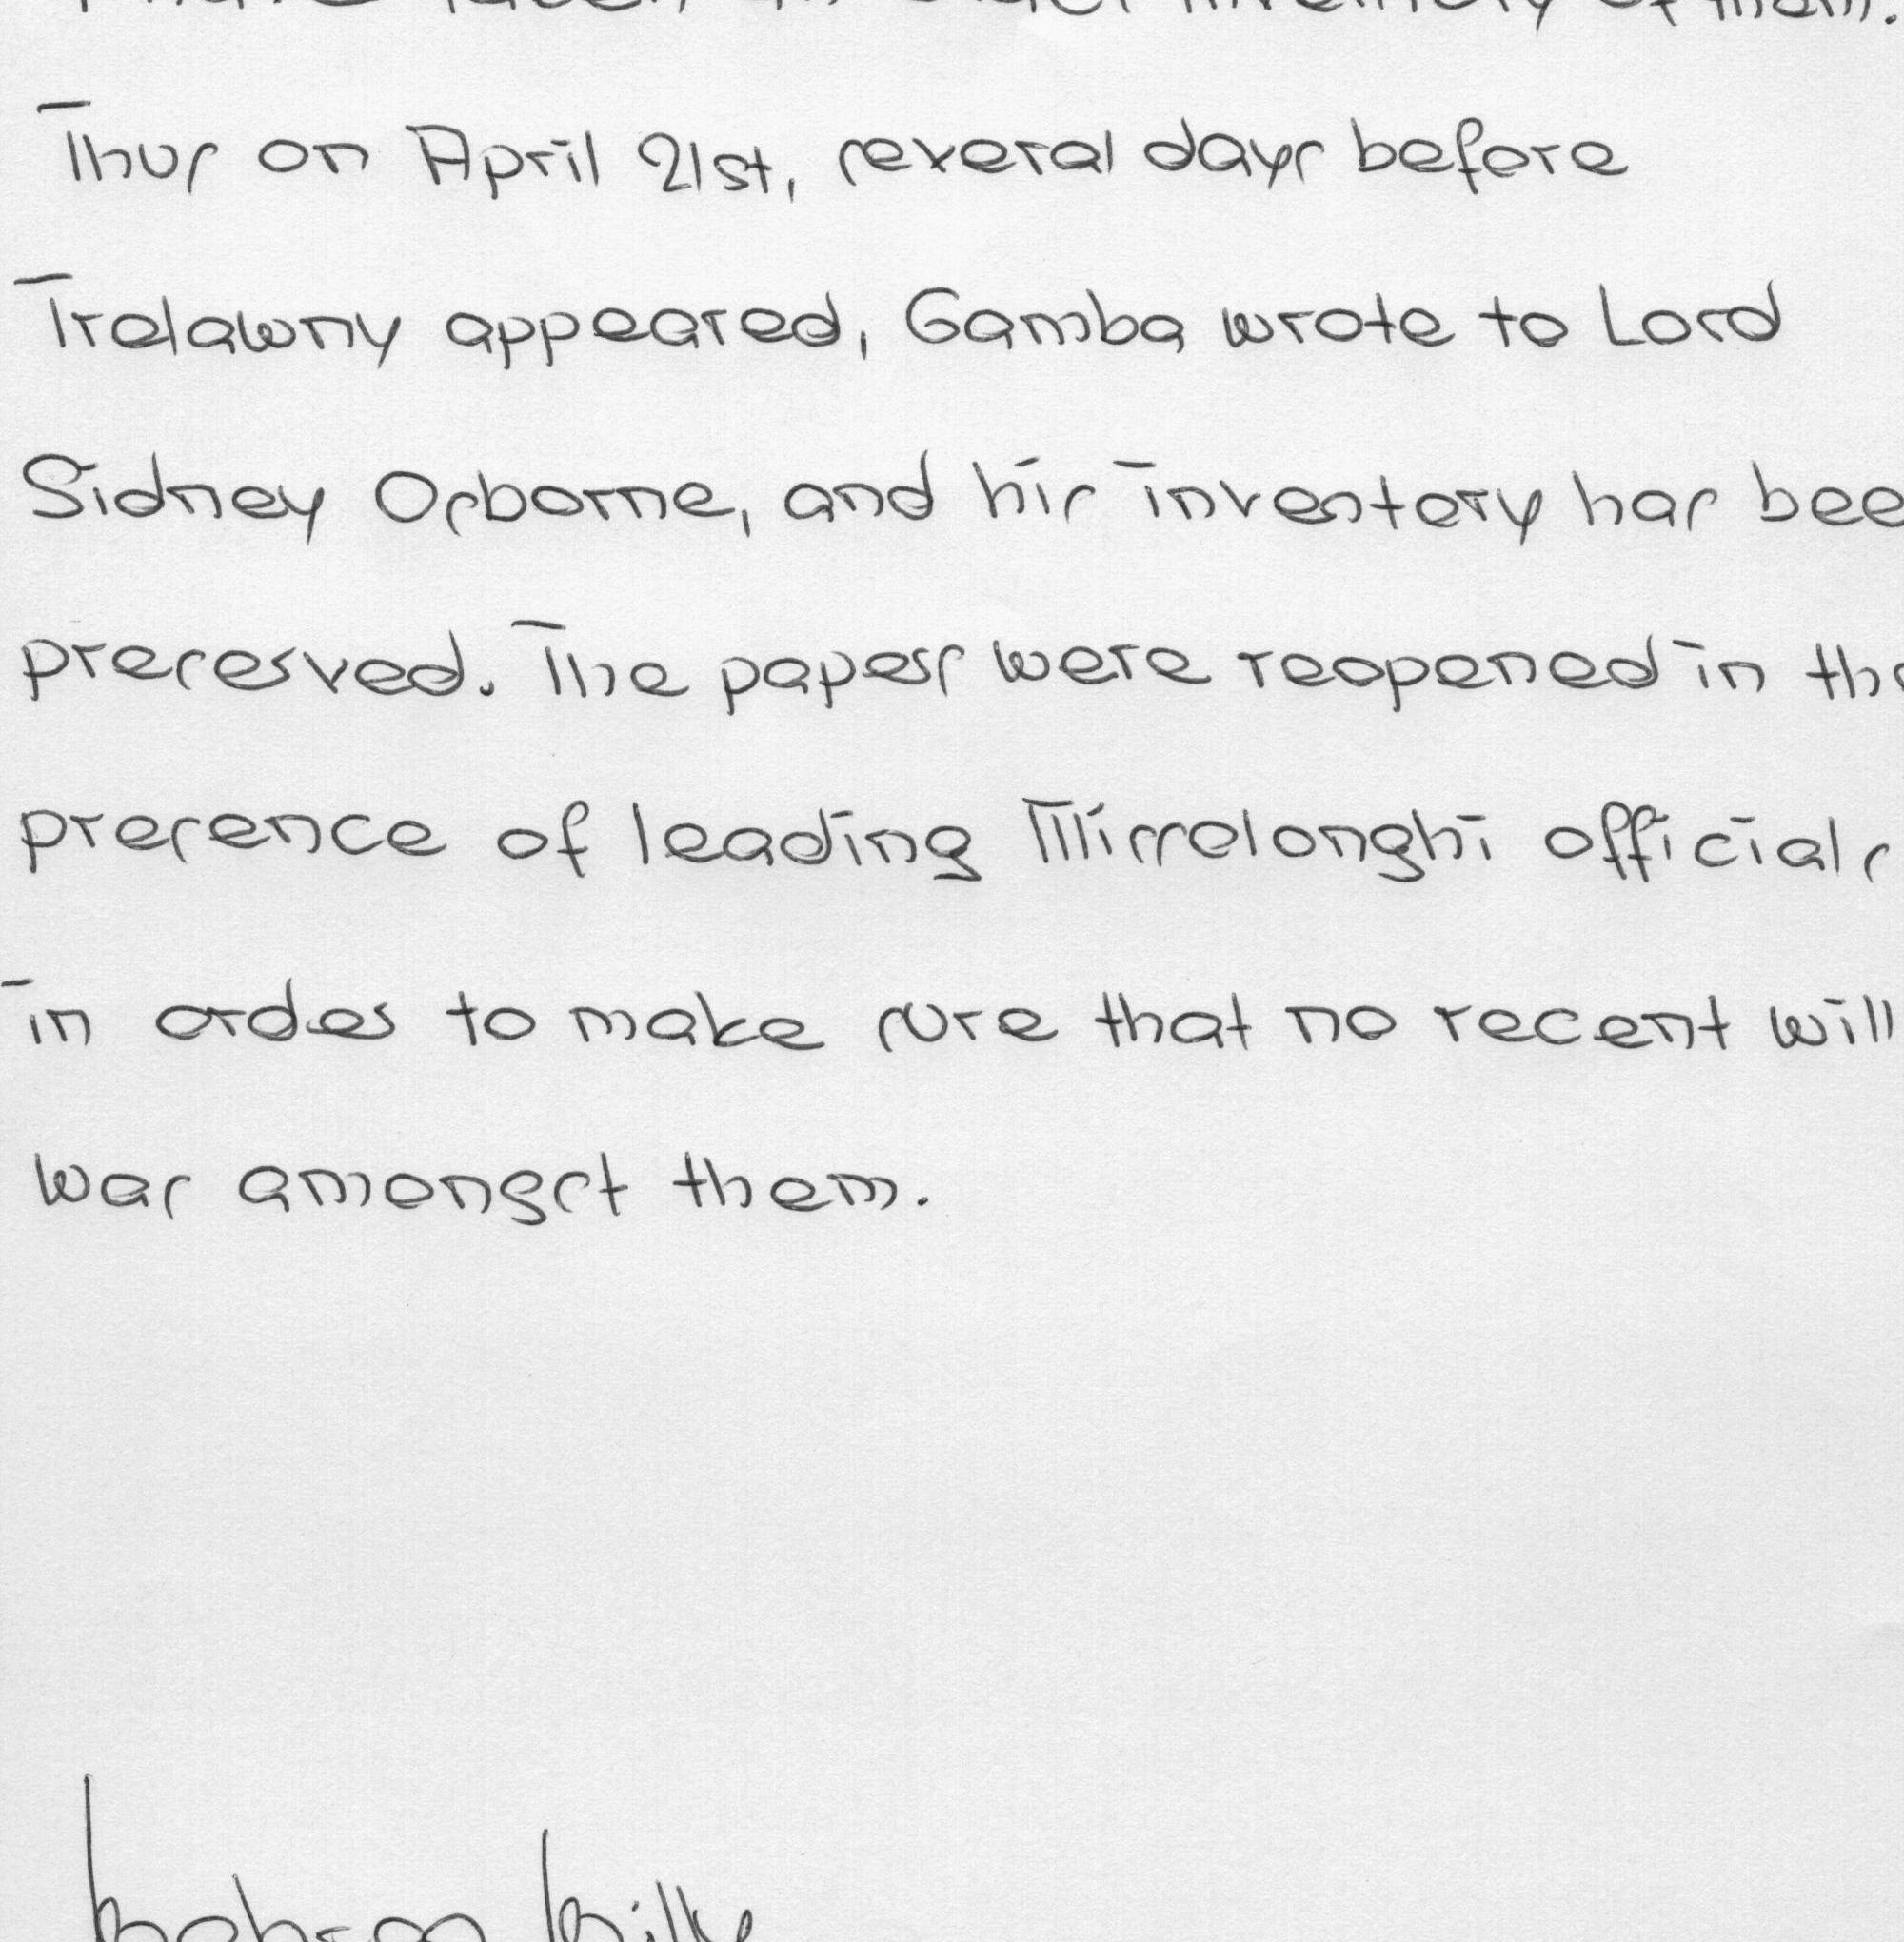 have taken an exact inventory of them.
Thus on April 21st, several days before
Trelawny appeared, Gamba wrote to Lord
Sidney Osborne, and his inventory has bee
preserved. The papers were reopened in the
presence of leading Missolonghi officials
in order to make sure that no recent will
was amongst them.